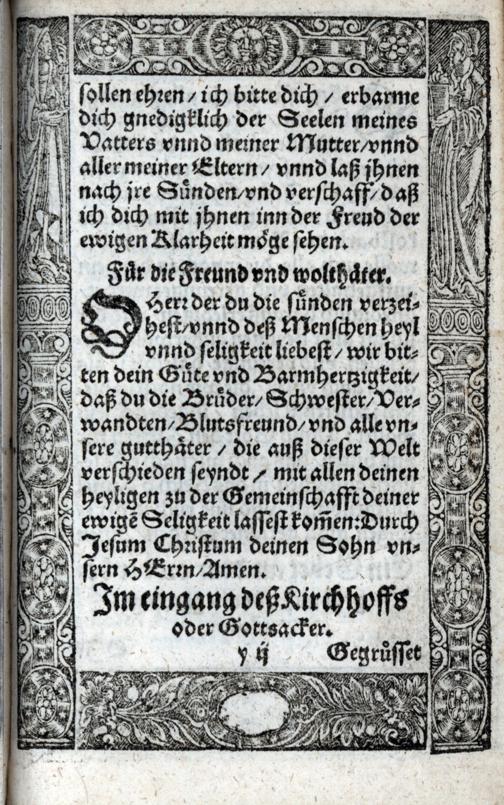 sollen ehren/ ich bitte dich / erbarme
dich gnedigklich der Seelen meines
Vatters vnnd meiner Mutter/vnnd
aller meiner Eltern/ vnnd laß jhnen
nach jre Sünden/vnd verschaff/ daß
ich dich mit jhnen inn der Freud der
ewigen Klarheit möge sehen.
Für die Freund vnd wolthäter.
O Herr der du die sünden verzei-
hest/vnnd deß Menschen heyl
vnnd seligkeit liebest/ wir bit-
ten dein Güte vnd Barmhertzigkeit/
daß du die Brüder/ Schwester/Ver-
wandten/Blutsfreund/vnd alle vn-
sere gutthäter / die auß dieser Welt
verschieden seyndt / mit allen deinen
heyligen zu der Gemeinschafft deiner
ewigẽ Seligkeit lassest kom̃en:Durch
Jesum Christum deinen Sohn vn-
sern HErrn/Amen.
Im eingang deß Kirchhoffs
oder Gottsacker.
y ij Gegrüsset